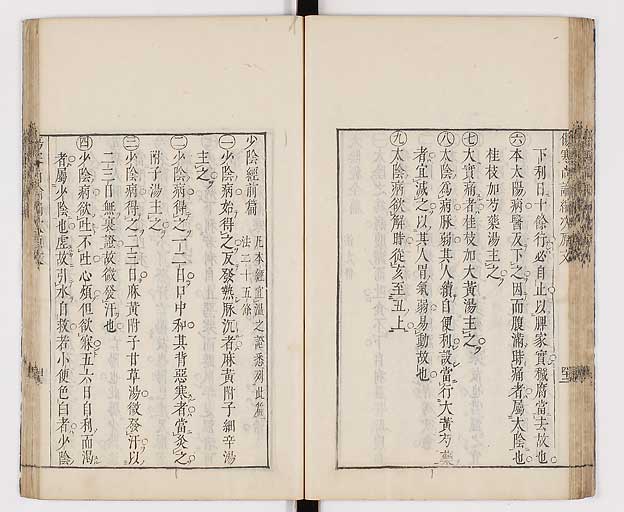 下利日十餘行必自止以脾家實穢腐當去故也
六本太陽病醫反下之因而腹滿時痛者屬太陰也
桂枝加芍藥湯主之
七大實痛者桂枝加大黃湯主之
八太陰為病脉弱其人續自便利設當行大黃芍藥
者宜減之以其人胃氣弱易動故也
九太陰病欲解時從亥至丑上
少陰經前篇
凡本經宜溫之證悉列此篇
法二十五條
一少陰病始得之反發熱脉沉者麻黃附子細辛湯
主之
二少陰病得之一二日口中和其背惡寒者當灸之
附子湯主之
三少陰病得之二三日麻黃附子甘草湯微發汗以
二三日無裏證故微發汗也
四少陰病欲吐不吐心煩但欲寐五六日自利而渴
者屬少陰也虛故引水自救若小便色白者少陰